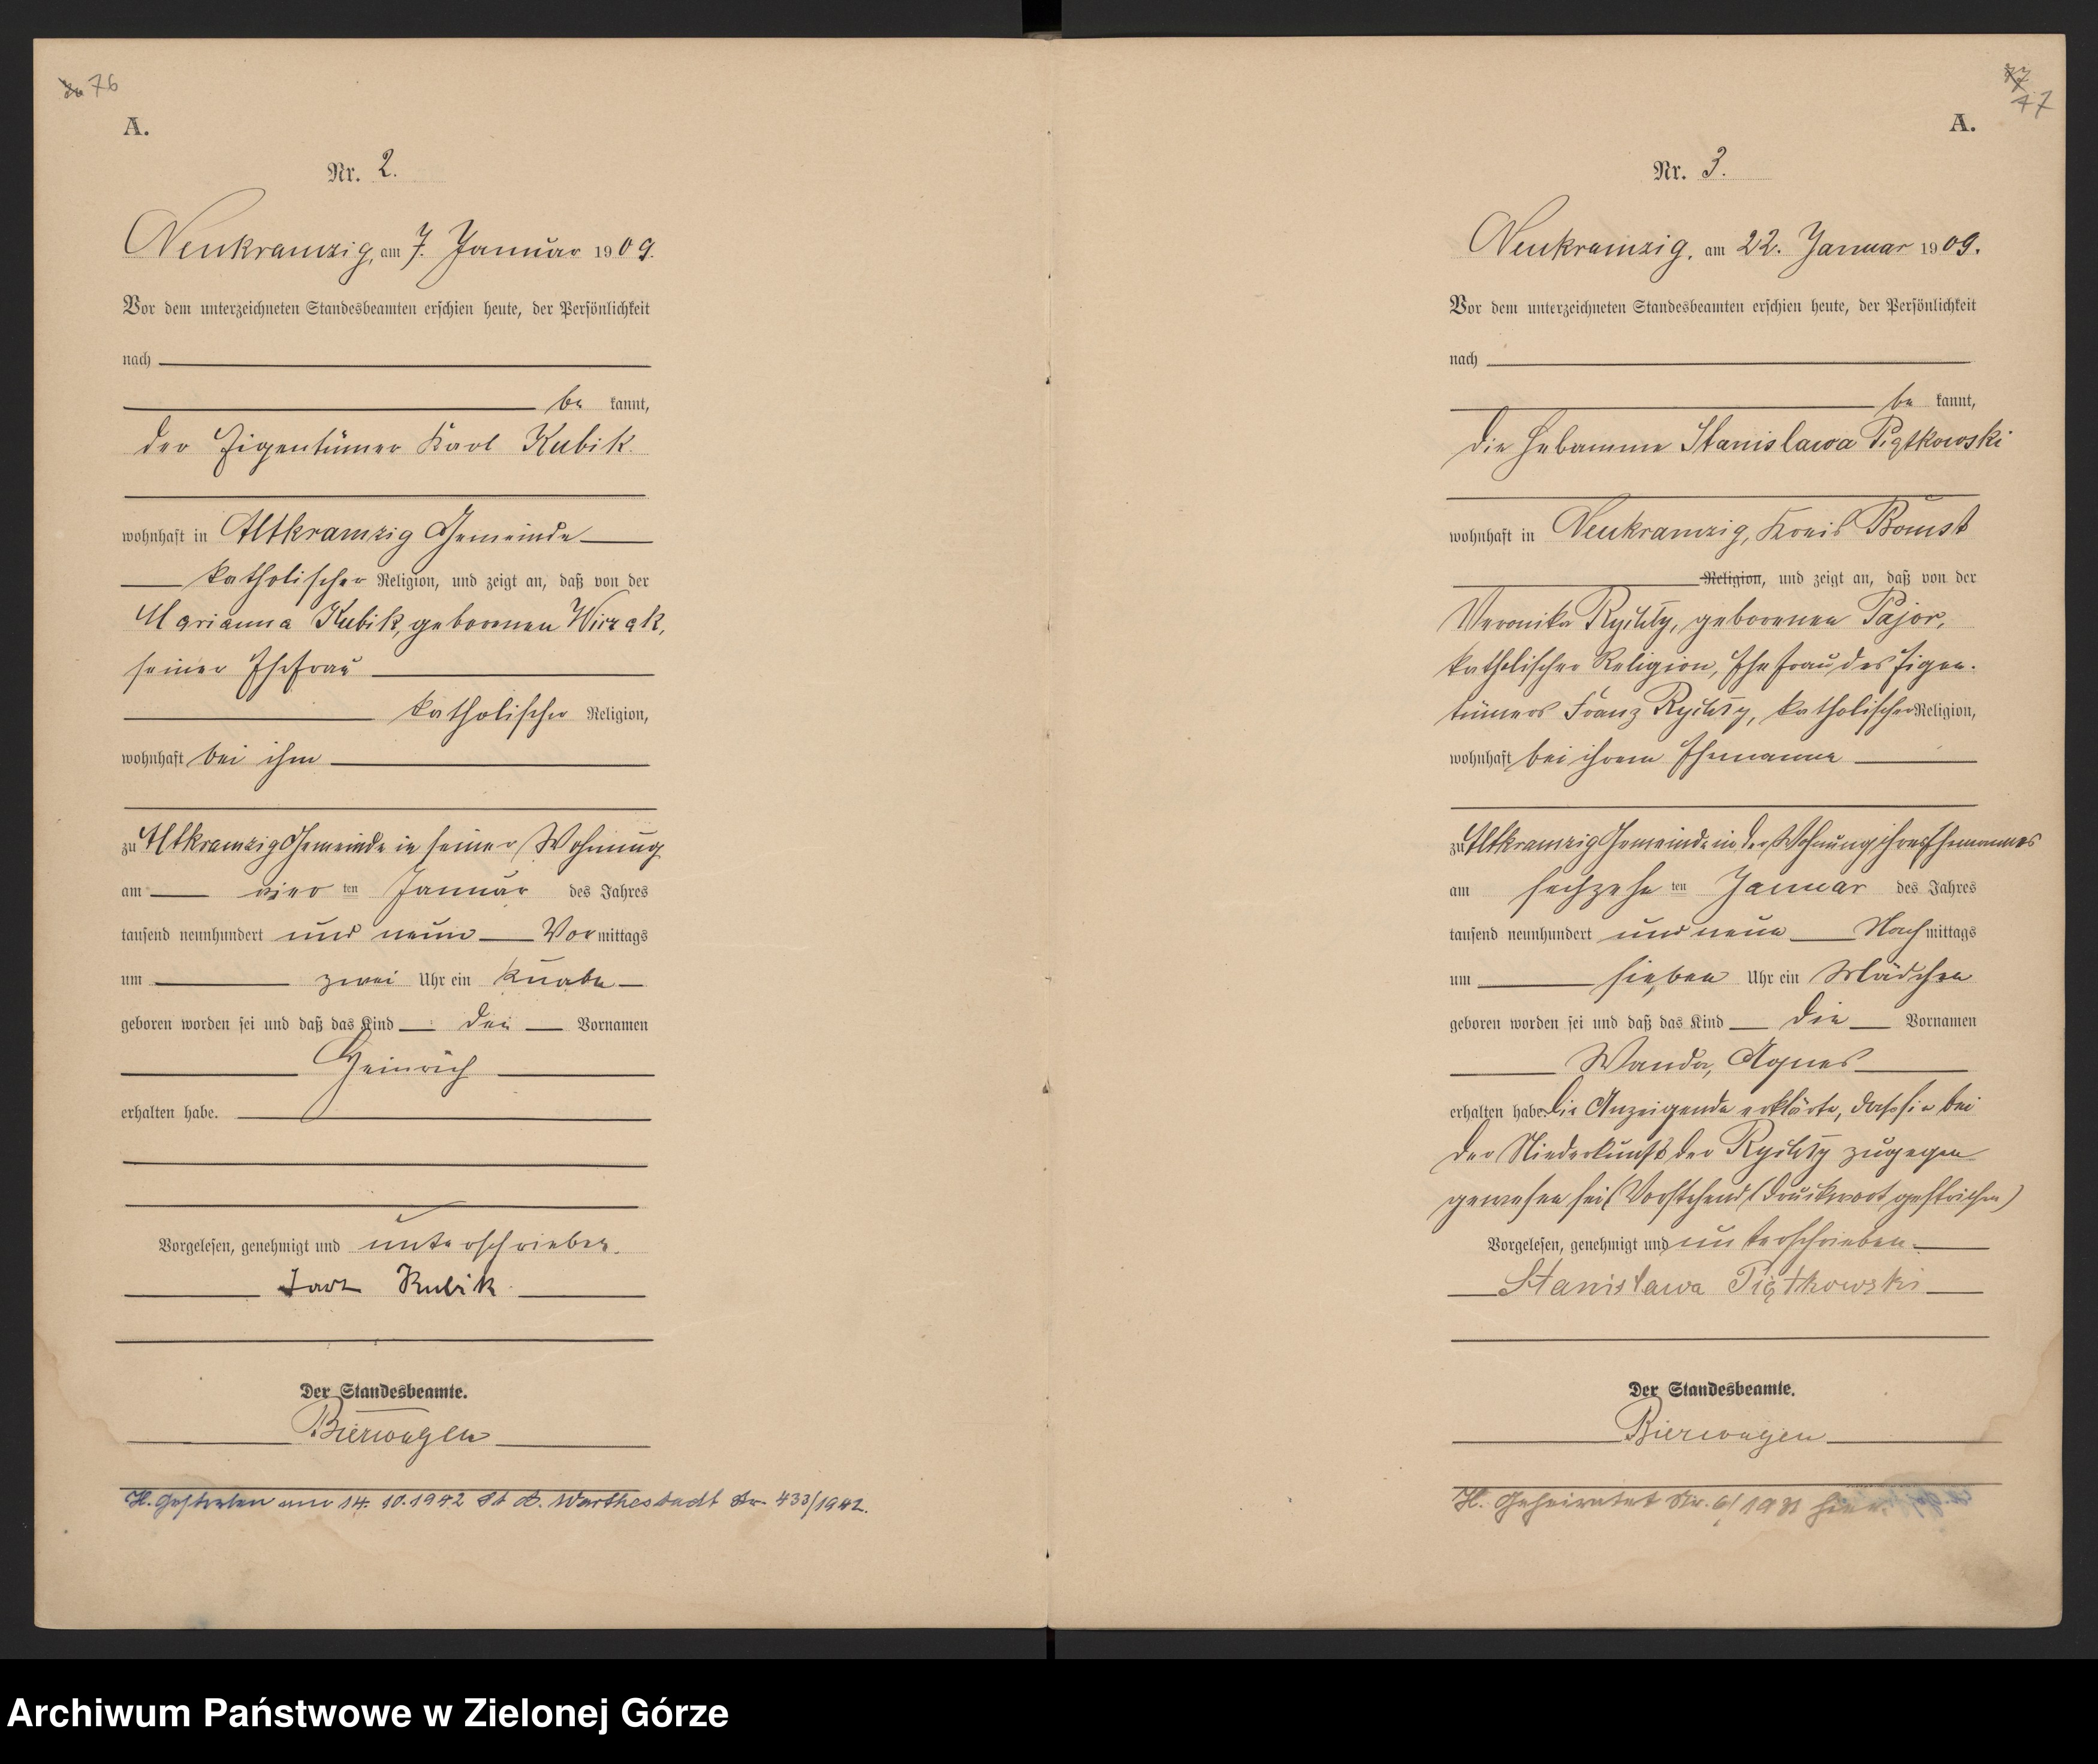 76
A.
Nr. 2.
Neukramzig, am 7. Januar 1909.
Vor dem unterzeichneten Standesbeamten erschien heute, der Persönlichkeit
nach
be kannt,
der Eigentümer Karl Kubik.
wohnhaft in Altkramzig Gemeinde
katholischer Religion, und zeigt an, daß von der
Marianna Kubik, geborenen
seiner Ehefrau
katholischer Religion,
wohnhaft bei ihm
zu Altkramzig Gemeinde in seiner Wohnung
am vier ten Januar des Jahres
tausend neunhundert und neun Vor mittags
um zwei Uhr ein Knabe
geboren worden sei und daß das Kind den Vornamen
Heinrich
erhalten habe.
Vorgelesen, genehmigt und unterschrieben.
Karl Kubik
Der Standesbeamte.
Bierwagen
H. Gestorben am 14. 10. 1942 St. A. Warthestadt Nr. 433/1942.
77
47
A.
Nr. 3.
Neukramzig, am 22. Januar 1909.
Vor dem unterzeichneten Standesbeamten erschien heute, der Persönlichkeit
nach
be kannt,
die Hebamme Stanislawa Piątkowski
wohnhaft in Neukramzig, Kreis Bomst
Religion, und zeigt an, daß von der
Veronika Rychły, geborenen Pajor,
katholischer Religion, Ehefrau des Eigen-
tümers Franz Rychły, katholischer Religion,
wohnhaft bei ihrem Ehemanne
zu Altkramzig Gemeinde in der Wohnung ihres Ehemannes
am sechzehn ten Januar des Jahres
tausend neunhundert und neun Nach mittags
um sieben Uhr ein Mädchen
geboren worden sei und daß das Kind die Vornamen
Wanda, Agnes
erhalten habe. Die Anzeigende erklärte, dass sie bei
der Niederkunft der Rychły zugegen
gewesen sei (Vorstehend 1 Druckwort gestrichen)
Vorgelesen, genehmigt und unterschrieben.
Stanisława Piątkowski
Der Standesbeamte.
Bierwagen
H. Geheiratet Nr. 6/1931 hier.
Archiwum Państwowe w Zielonej Górze